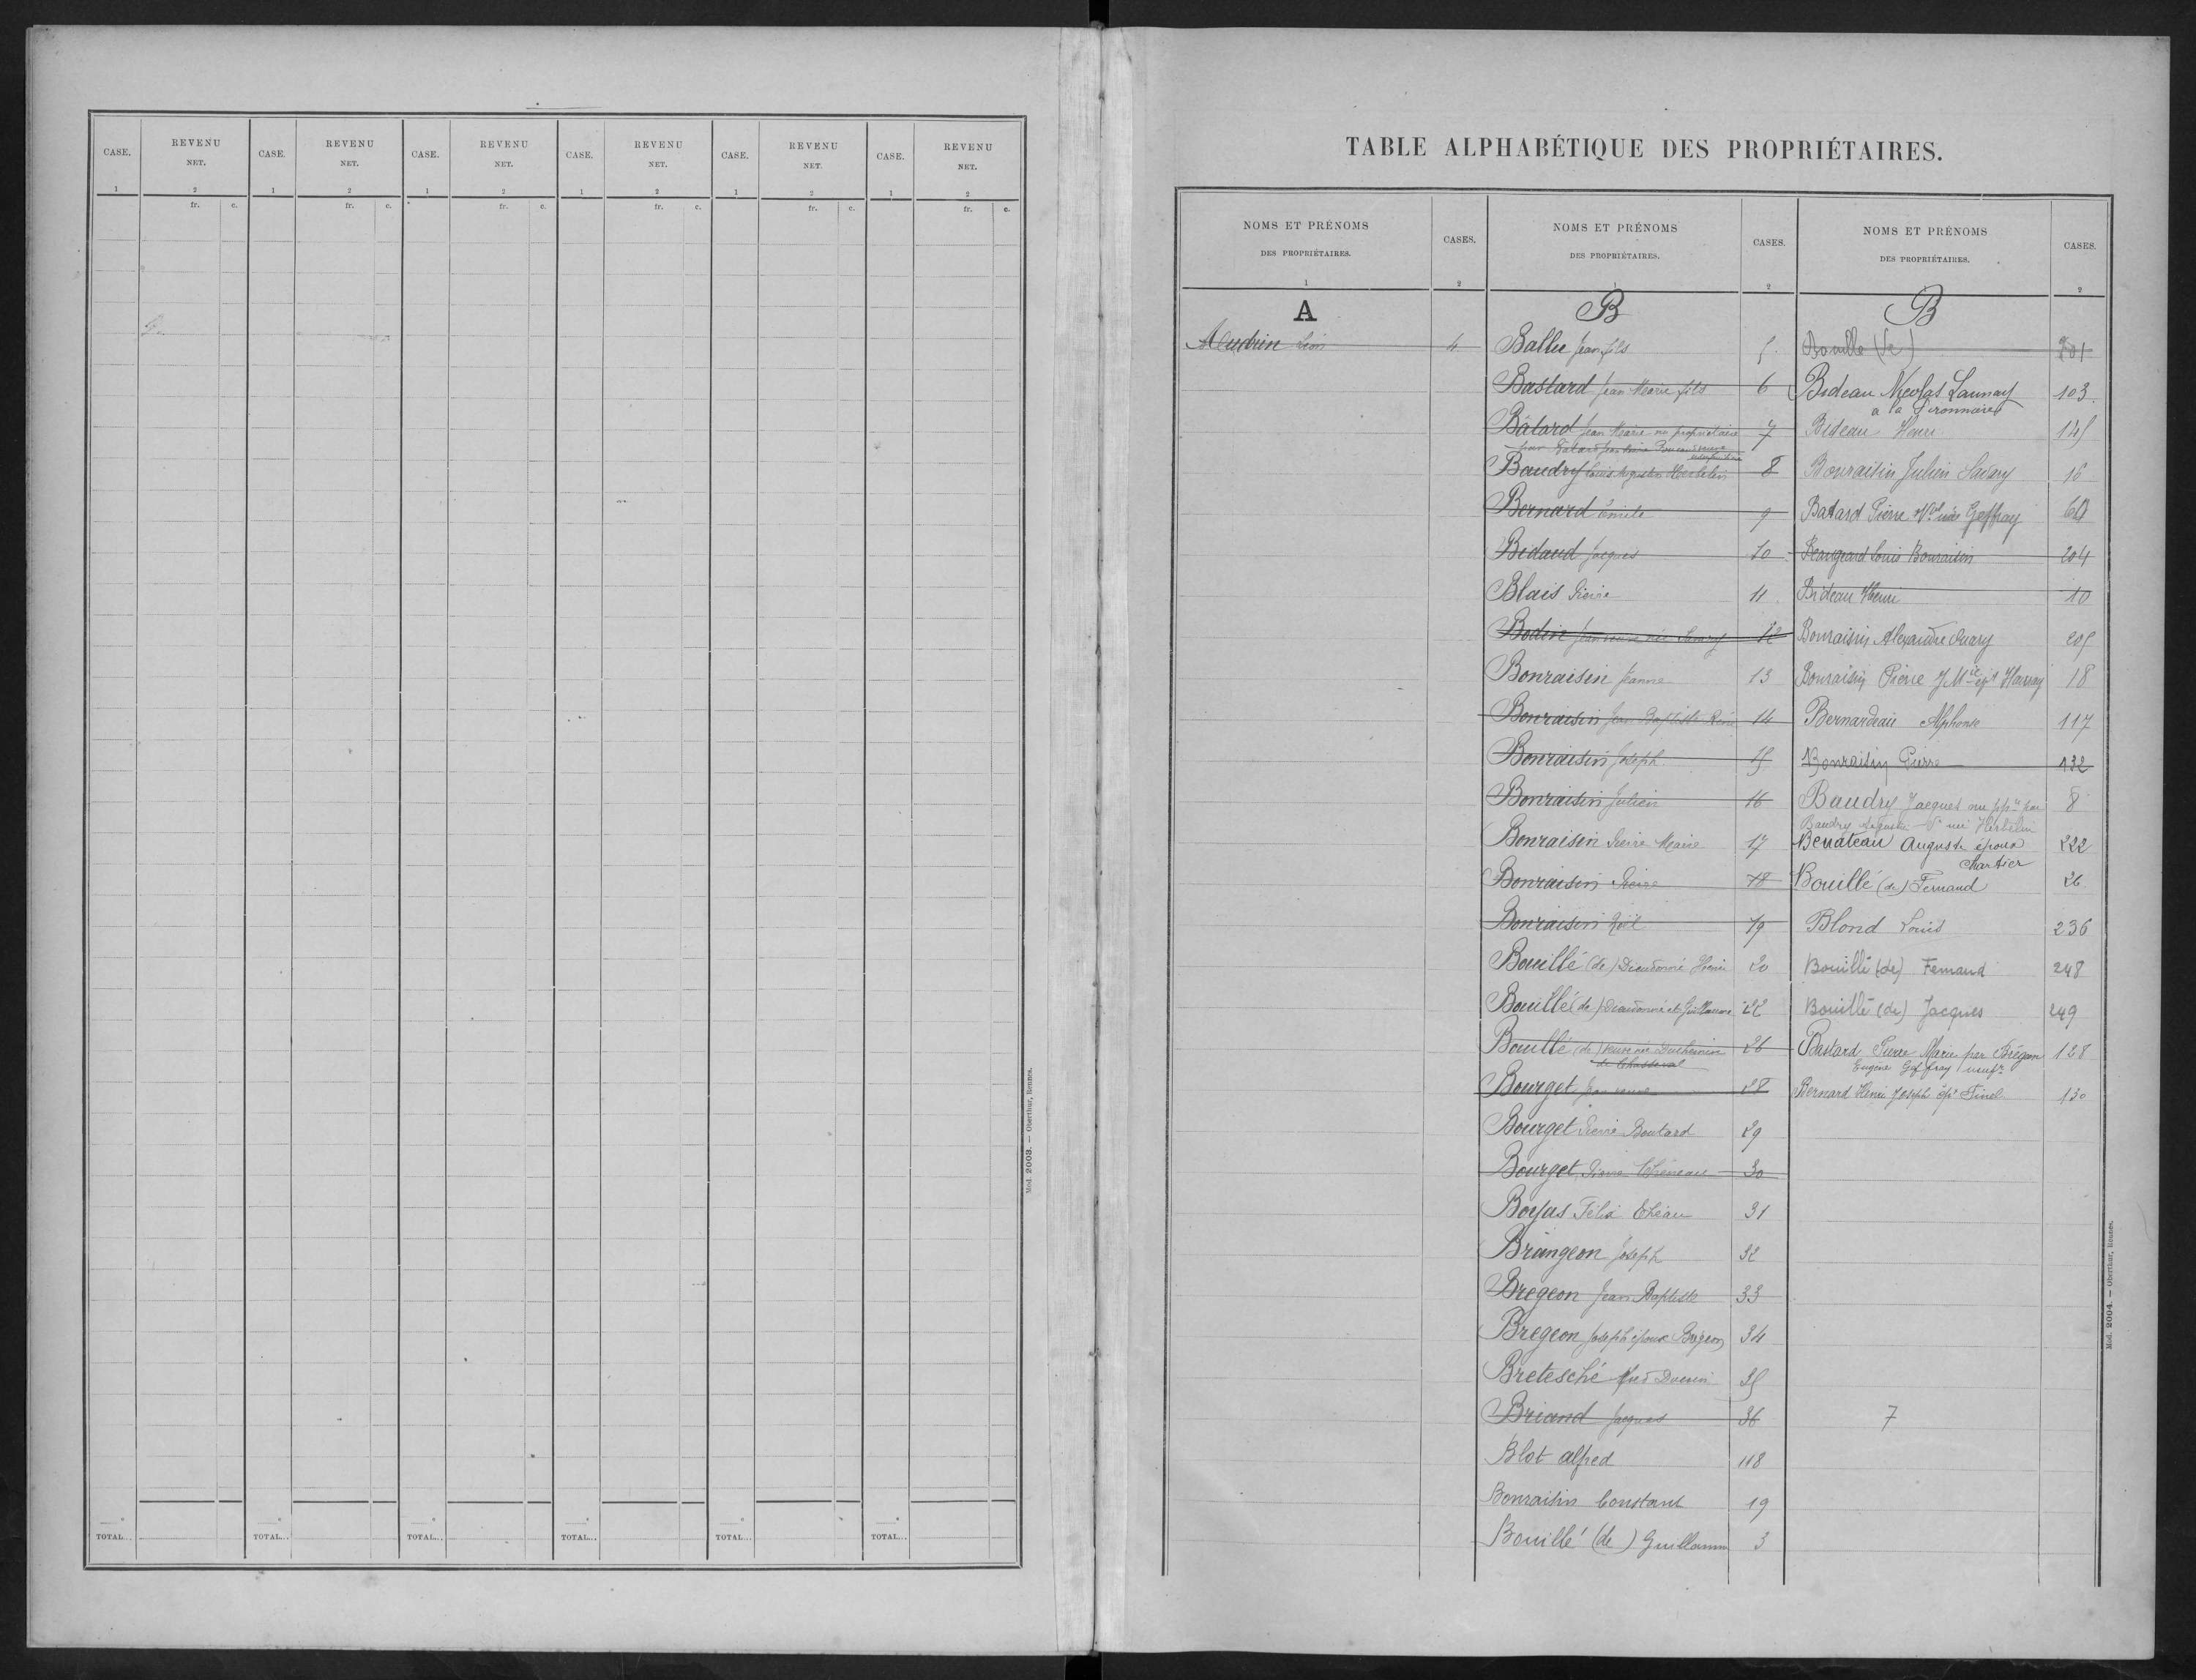 CASE. REVENU NET. CASE. REVENU NET. CASE. REVENU NET. CASE. REVENU NET. CASE. REVENU NET. CASE. REVENU NET.
1 2 1 2 1 2 1 2 1 2 1 2
fr. c. fr. c. fr. c. fr. c. fr. c. fr. c.
TOTAL... TOTAL... TOTAL... TOTAL... TOTAL... TOTAL...
Mod. 2003. — Oberthur, Rennes.
TABLE ALPHABÉTIQUE DES PROPRIÉTAIRES.
NOMS ET PRÉNOMS
DES PROPRIÉTAIRES.
CASES.
1 2
A
Audrin Léon 4
NOMS ET PRÉNOMS
DES PROPRIÉTAIRES.
CASES.
1 2
B
Ballu Jean fils 5
Bastard Jean Marie fils 6
Batard Jean Marie nu propriétaire 7
Baudry Louis Auguste Herbelin 8
Bernard Emile 9
Bidaud Jacques 10
Blais Pierre 11
Bodin Jean veuve née Savary 12
Bonraisin Jeanne 13
Bonraisin Jean Baptiste René 14
Bonraisin Joseph 15
Bonraisin Julien 16
Bonraisin Pierre Marie 17
Bonraisin Pierre 18
Bonraisin Noël 19
Bouillé (de) Dieudonné Henri 20
Bouillé (de) Dieudonné et Guillaume 22
Bouillé (de) veuve née Duchemin 26
de Chasseval
Bourget Jean veuve 28
Bourget Pierre Boutard 29
Bourget Pierre Chéneau 30
Boyas Félix Théau 31
Brangeon Joseph 32
Bregeon Jean Baptiste 33
Bregeon Joseph époux Brégeon 34
Bretesché 35
Briand Jacques 36
Blot alfred 118
Bonraisin Constant 19
Bouillé (de) Guillaume 3
NOMS ET PRÉNOMS
DES PROPRIÉTAIRES.
CASES.
2
B
Bouille (de) 201
Bideau Nicolas Launay 103
à la
Bideau Henri 125
Bonraisin Julien Savary 16
Batard Pierre Vve née Geffray 60
Louis Bonraisin 204
Bideau Henri 10
Bonraisin Alexandre 205
Bonraisin Pierre J Mie 18
Bernardeau Alphonse 117
Bonraisin Pierre 132
Baudry Jacques nu ppre par 8
Baudry Auguste Ve née Herbelin
Benateau Auguste époux 222
Chartier
Bouillé (de) Fernand 26
Blond Louis 236
Bouillé (de) Fernand 248
Bouillé (de) Jacques 249
Bastard Pierre Marie par Brégeon 128
Eugène Geffray usufr
Bernard Henri Joseph épx Pinel 130
7
Mod. 2004. — Oberthur, Rennes.